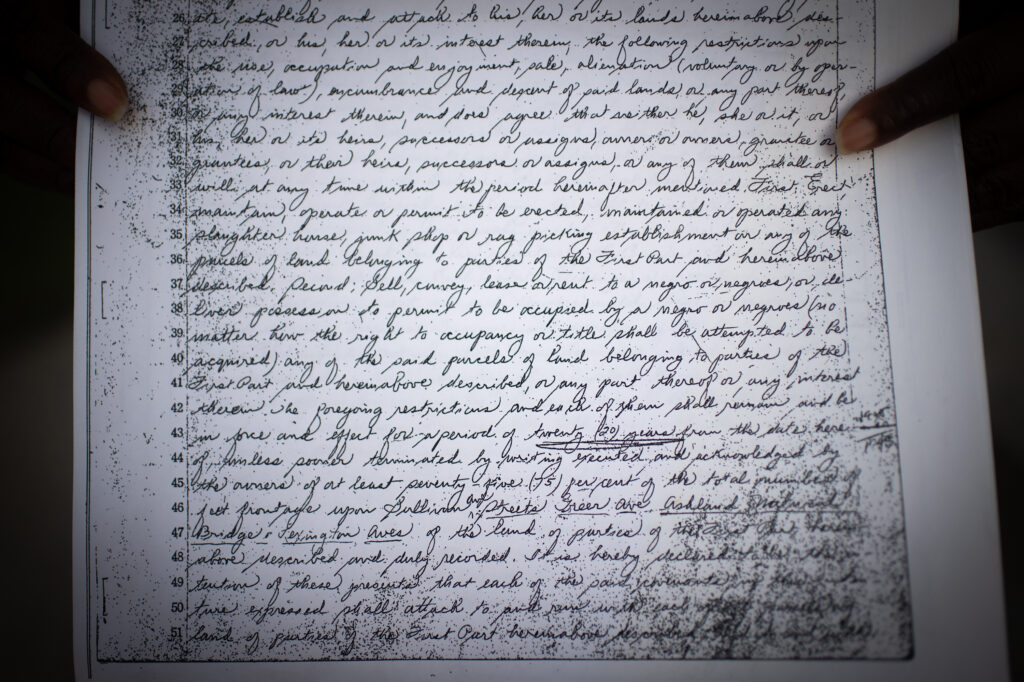 tte, establish and attach to his, her or its lands hereinabove des-
26 cribed, or his, her or its interest therein, the following restrictions upon
28 the use, occupation and enjoyment, sale, alienation (voluntary or by oper-
29 ation of law), encumbrance and descent of said lands or any part thereof
30 or any interest therein, and does agree that neither he, she or it, or
31 his, her or its heirs, successors or assigns, owner or owners, grantee or
32 grantees, or their heirs, successors or assigns, or any of them shall or
33 will, at any time within the period hereinafter mentioned First, Erect
34 maintain, operate or permit to be erected, maintained or operated any
35 slaughter house, junk shop or rag picking establishment on any of the
36 parcels of land belonging to parties of the First Part and hereinabove
37 described. Second: Sell, convey, lease or rent to a negro or negroes, or de-
38 liver possession to permit to be occupied by a negro or negroes (no
39 matter how the right to occupancy or title shall be attempted to be
40 acquired) any of the said parcels of land belonging to parties of the
41 First Part and hereinabove described, or any part thereof or any interest
42 therein. The foregoing restrictions and each of them shall remain and be
43 in force and effect for a period of twenty (20) years from the date here
44 of unless sooner terminated by writing executed and acknowledged by
45 the owners of at least seventy-five (75) per cent of the total number of
46 feet frontage upon Sullivan Ave Streets Greer Ave Ashland
47 Bridge Aves of the land of parties of the First Part herein
48 above described and duly recorded. It is hereby declared the
49 tention of these presents that each of the said covenants
50 ture expressed shall attach to and run with each
51 land of parties of the First Part hereinabove described